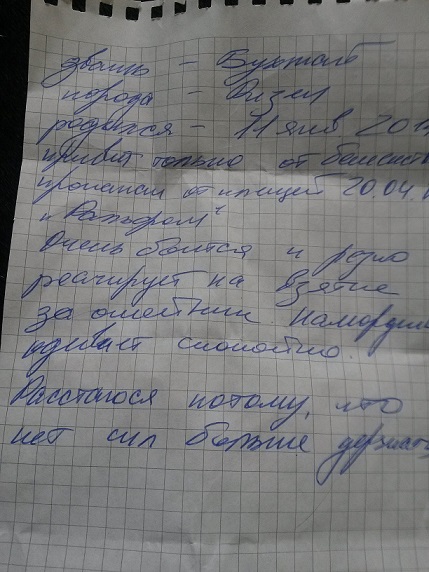 звать –
порода – Ризен
родился – 11 янв 201
привит только от бешенст
от клещей 20.04.
и "Рольфом"
Очень боится и резко
реагирует на взятие
за ошейник. Намордни
одевает спокойно.
Расстаюся потому, что
нет сил больше держать